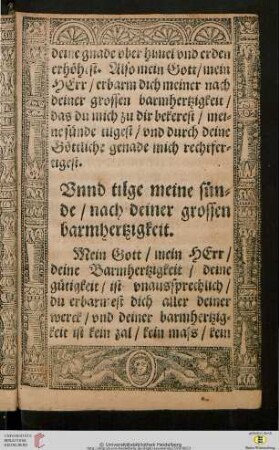 deine gnade vber himel vnd erden
erhöhest. Also mein Gott / mein
HErr / erbarm dich meiner nach
deiner grossen barmhertzigkeit /
das du mich zu dir bekerest / mei-
ne sünde tilgest / vnd durch deine
Göttliche genade mich rechtfer-
tigest.
Vnnd tilge meine sün-
de / nach deiner grossen
barmhertzigkeit.
Mein Gott / mein HErr /
deine Barmhertzigkeit / deine
gütigkeit / ist vnaussprechlich /
du erbarmest dich aller deiner
werck / vnd deiner barmhertzig-
keit ist kein zal / kein mass / kein
UNIVERSITÄTS-
BIBLIOTHEK
HEIDELBERG
© Universitätsbibliothek Heidelberg